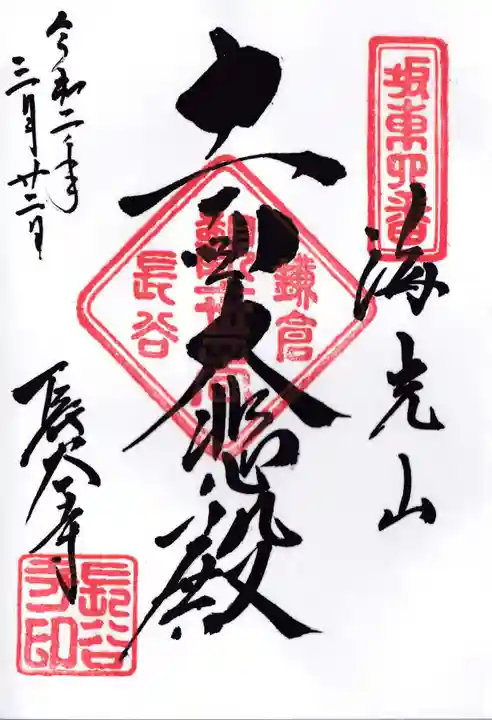 坂東四番
海光山
十一面大悲殿
鎌倉
觀世音
長谷
令和二年
三月廿二日
長谷寺
長谷
寺印